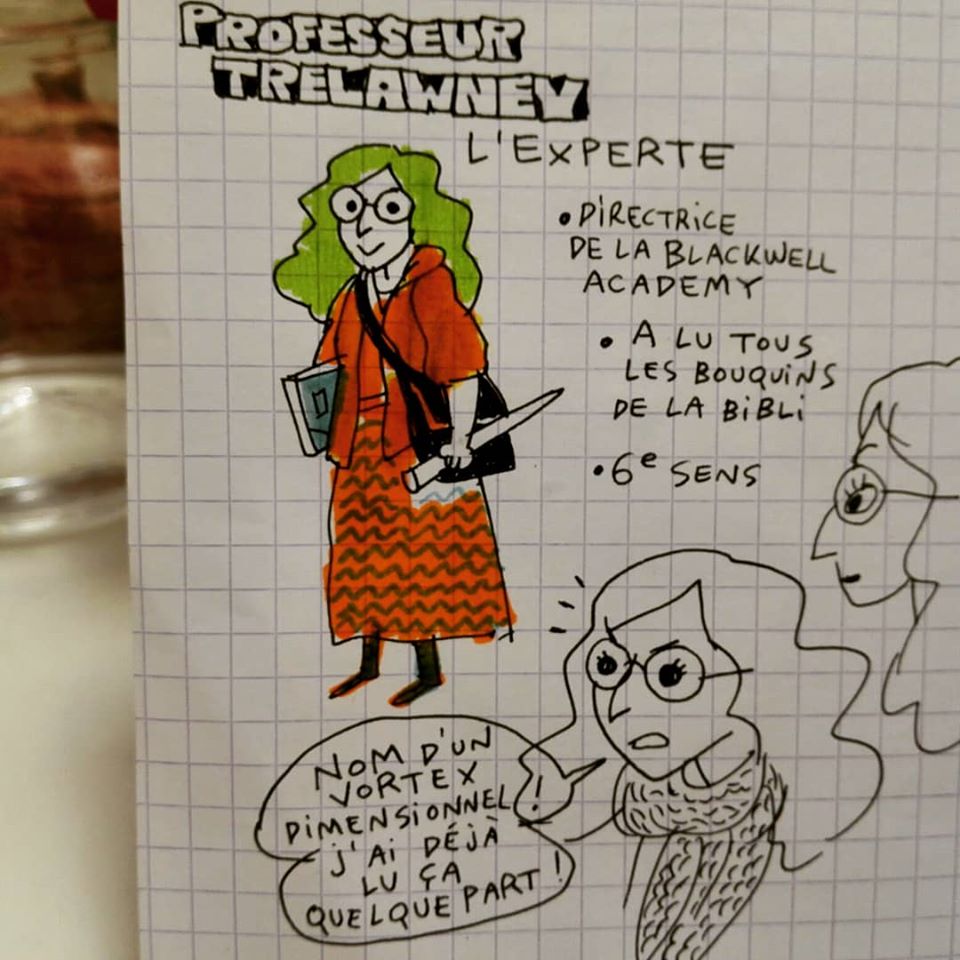 PROFESSEUR
TRELAWNEY
L'EXPERTE
• DIRECTRICE
DE LA BLACKWELL
ACADEMY
• A LU TOUS
LES BOUQUINS
DE LA BIBLI
• 6e SENS
NOM D'UN
VORTEX
DIMENSIONNEL
!
J'AI DÉJÀ
LU ÇA
QUELQUE PART !